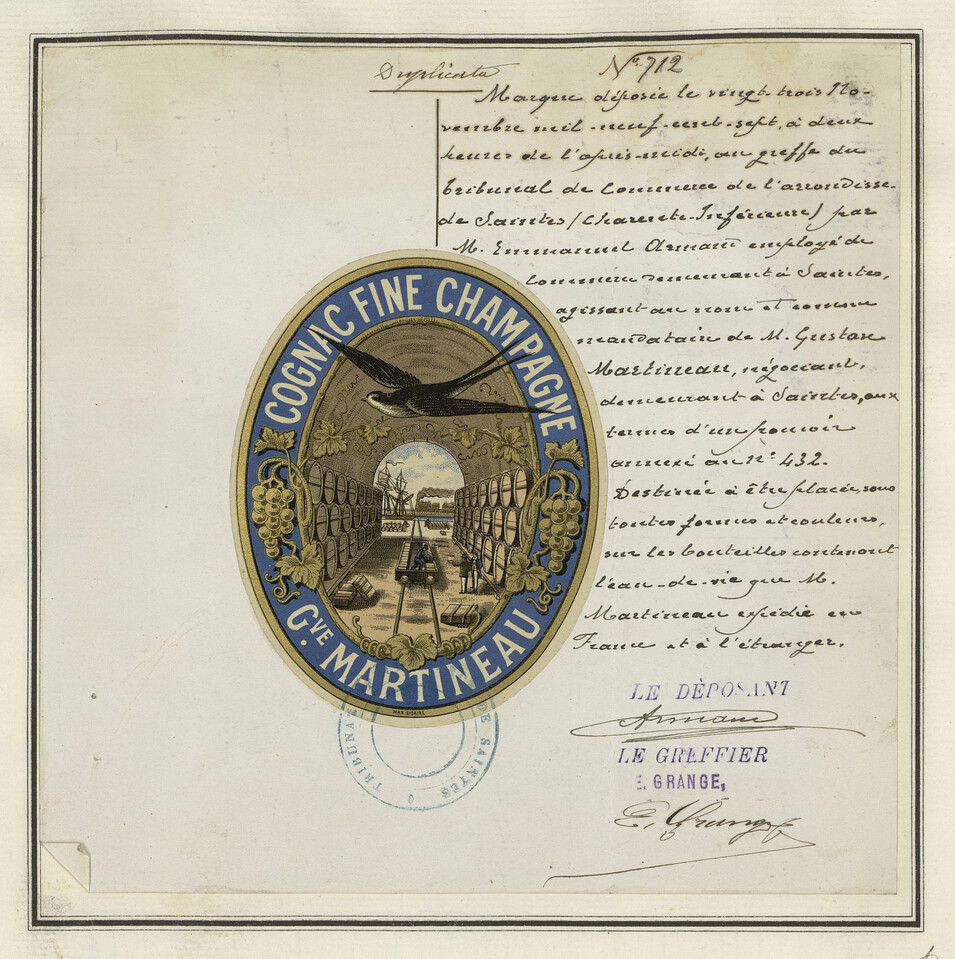 Duplicata
N° 712
Marque déposée le vingt-trois No-
vembre mil-neuf-cent-sept, à deux
heures de l'après-midi, au greffe du
tribunal de Commerce de l'arrondisse-
de Saintes (Charente-Inférieure) par
M. Emmanuel Armand employé de
commerce demeurant à Saintes,
agissant au nom et comme
mandataire de M. Gustave
Martineau, négociant,
demeurant à Saintes, aux
termes d'un pouvoir
annexé au n° 432.
Destinée à être placée, sous
toutes formes et couleurs,
sur les bouteilles contenant
l'eau-de-vie que M.
Martineau expédie en
France et à l'étranger.
COGNAC FINE CHAMPAGNE
GVE MARTINEAU
TRIBUNA DE SAINTES
LE DÉPOSANT
Armand
LE GREFFIER
E. GRANGE,
E. Grange